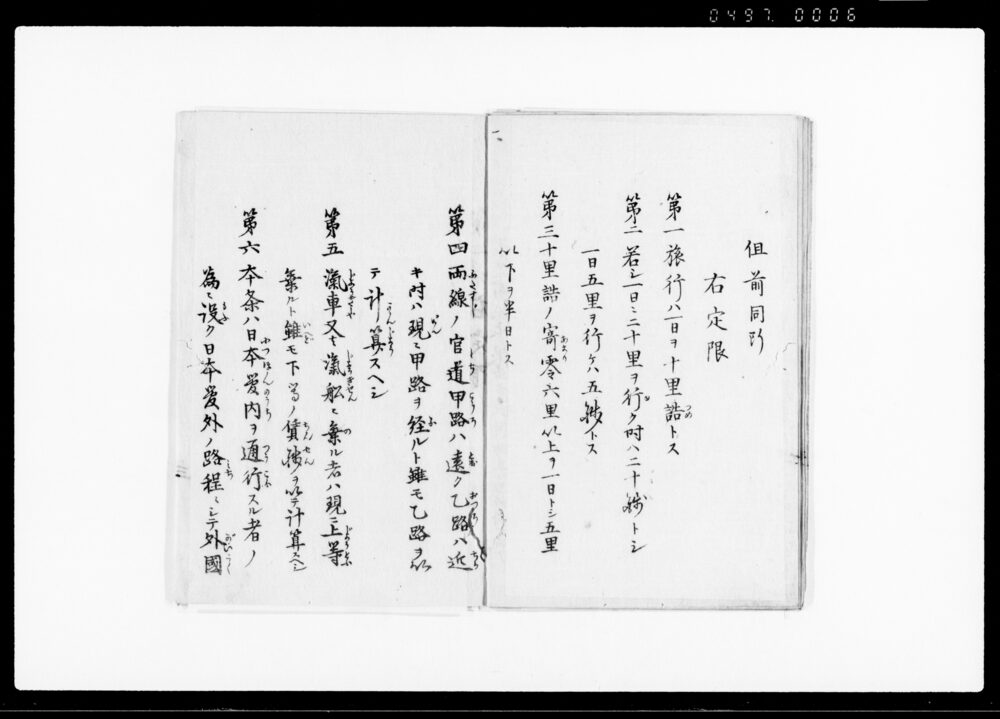 0497. 0006
但前同断
右定限
第一 旅行ハ一日ヲ十里詰トス
第二 若シ一日ニ二十里ヲ行ク時ハ二十銭トシ
一日五里ヲ行ケハ五銭トス
第三 十里詰ノ寄零六里以上ヲ一日トシ五里
以下ヲ半日トス
第四 両線ノ官道甲路ハ遠ク乙路ハ近
キ時ハ現ニ甲路ヲ経ルト雖モ乙路ヲ以
テ計算スヘシ
第五 滊車又ハ滊船ニ乗ル者ハ現ニ上等
乗ルト雖モ下等ノ賃銭ヲ以テ計算スヘシ
第六 本条ハ日本管内ヲ通行スル者ノ
為ニ設ク日本管外ノ路程ニシテ外國